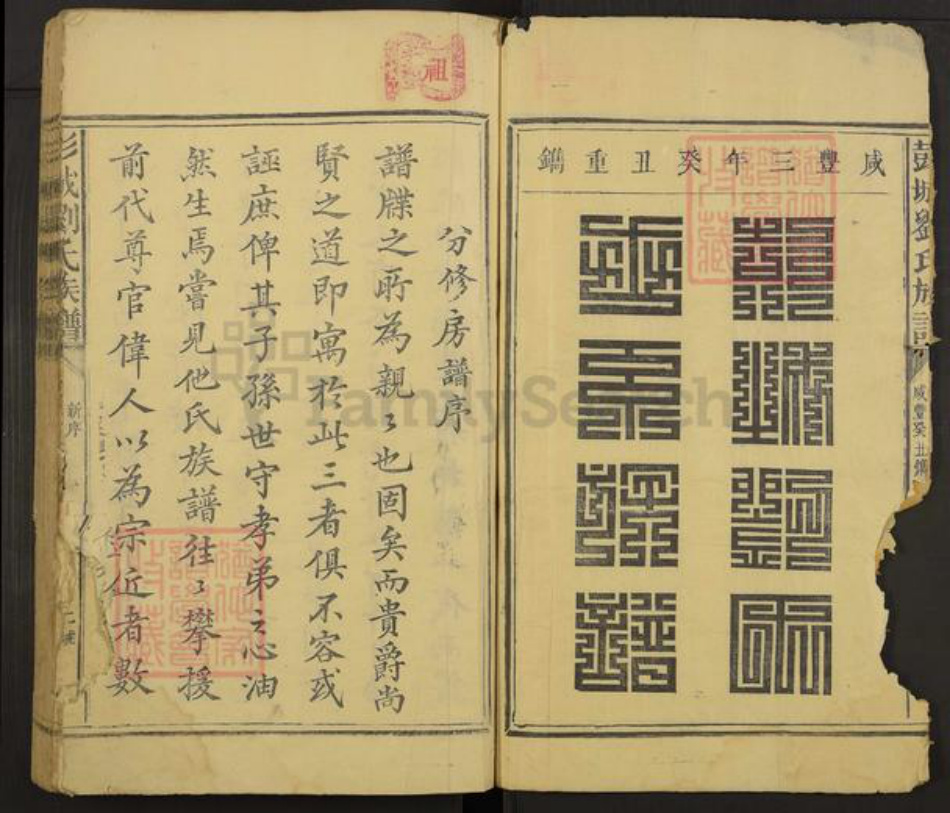 彭城劉氏族譜
咸豐癸丑鐫
咸豐三年癸丑重鐫
祖
分修房譜序
譜牒之所為親〻也固矣而貴爵尚
賢之道即寓於此三者俱不容或
誣庶俾其子孫世守孝弟之心油
然生焉嘗見他氏族譜往〻攀援
前代尊官偉人以為宗近者數
彭城劉氏族譜
新序
FamilySearch